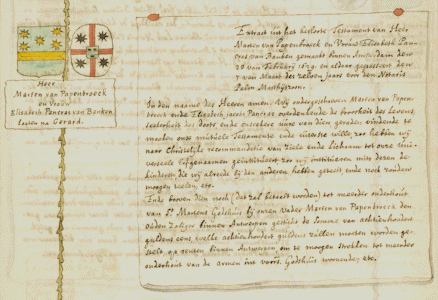 Heer
Marten van Papenbroeck
en Vrouw
Elisabeth Pancras van Banken
Extract uit het besloten Testament van Heer
Marten van Papenbroeck en Vrouwe Elisabeth Pan-
cras van Banken gemaekt binnen Amsterdam den
28 van February 1629. en aldaer gepasseert den
7 van Maert der zelven jaers voor den Notaris
Pieter Matthyszoon.
In den naeme des Heeren amen. Wy ondergeschreven Marten van Papen-
broeck ende Elisabeth Pancras overdenkende de broosheit des Levens,
sekerheit des doots ende onsekere uure van dien
maecken onse uiterste wille
naer Christelyke recommandatie van ziele ende lichaem tot onse uni-
verseele erfgenaemen wy institueeren mits dezen de
kinderen die wy alreede by den anderen hebben ofte ende noch zouden
mogen
Ende boven dien noch (dat zal betaelt worden) tot meerder onderhout
van St Martens Godshuis by onzen Vader Marten van Papenbroeck den
Ouden zaliger binnen Antwerpen gesticht de Somme van achtienhondert
guldens eens, welke achtienhondert guldens zullen moeten worden
op renten binnen Antwerpen om te moogen strekken tot meerder
onderhout van de armen int voors. Godshuis woonende, etc.